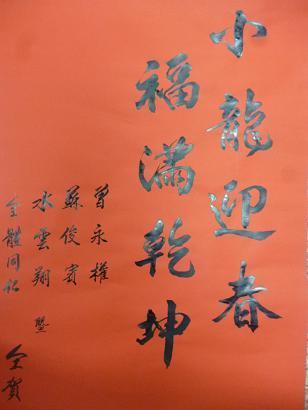 小龍迎春
福滿乾坤
曾永權
蘇俊賓
水雲翔 暨
全體同仁
仝賀